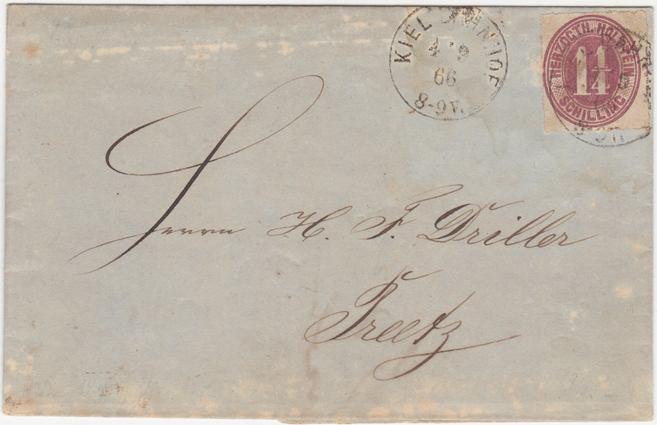 KIEL BAHNHOF
4 9
66
8-9V.
HERZOGTH. HOLSTEIN
1¼
SCHILLING
Herrn H. F. Driller
Preetz